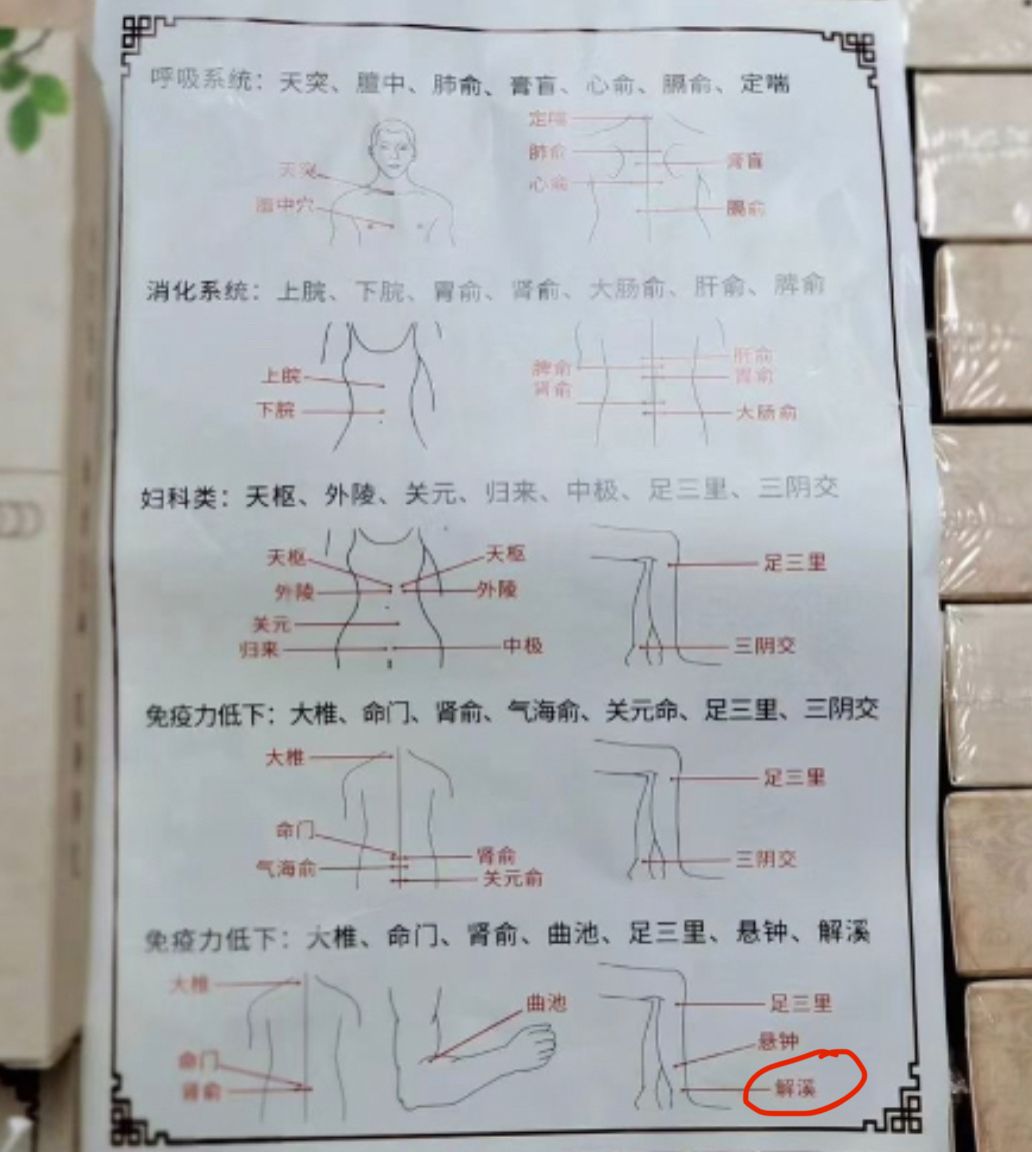 呼吸系统：天突、膻中、肺俞、膏盲、心俞、膈俞、定喘
定喘
天突
肺俞
膏盲
心俞
膻中穴
膈俞
消化系统：上脘、下脘、胃俞、肾俞、大肠俞、肝俞、脾俞
上脘
下脘
脾俞
肾俞
肝俞
胃俞
大肠俞
妇科类：天枢、外陵、关元、归来、中极、足三里、三阴交
天枢
天枢
外陵
外陵
关元
归来
中极
足三里
三阴交
免疫力低下：大椎、命门、肾俞、气海俞、关元命、足三里、三阴交
大椎
命门
气海俞
肾俞
关元俞
足三里
三阴交
免疫力低下：大椎、命门、肾俞、曲池、足三里、悬钟、解溪
大椎
命门
肾俞
曲池
足三里
悬钟
解溪